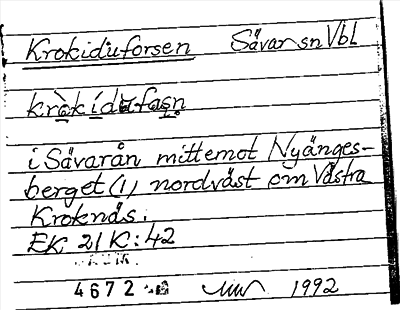 Krokiduforsen Sävar sn Vbl
kròkídufȧșn
i Sävarån mittemot Nyänges-
berget (1) nordväst om Västra
Kroknäs.
EK 21 K:42
4672 1992